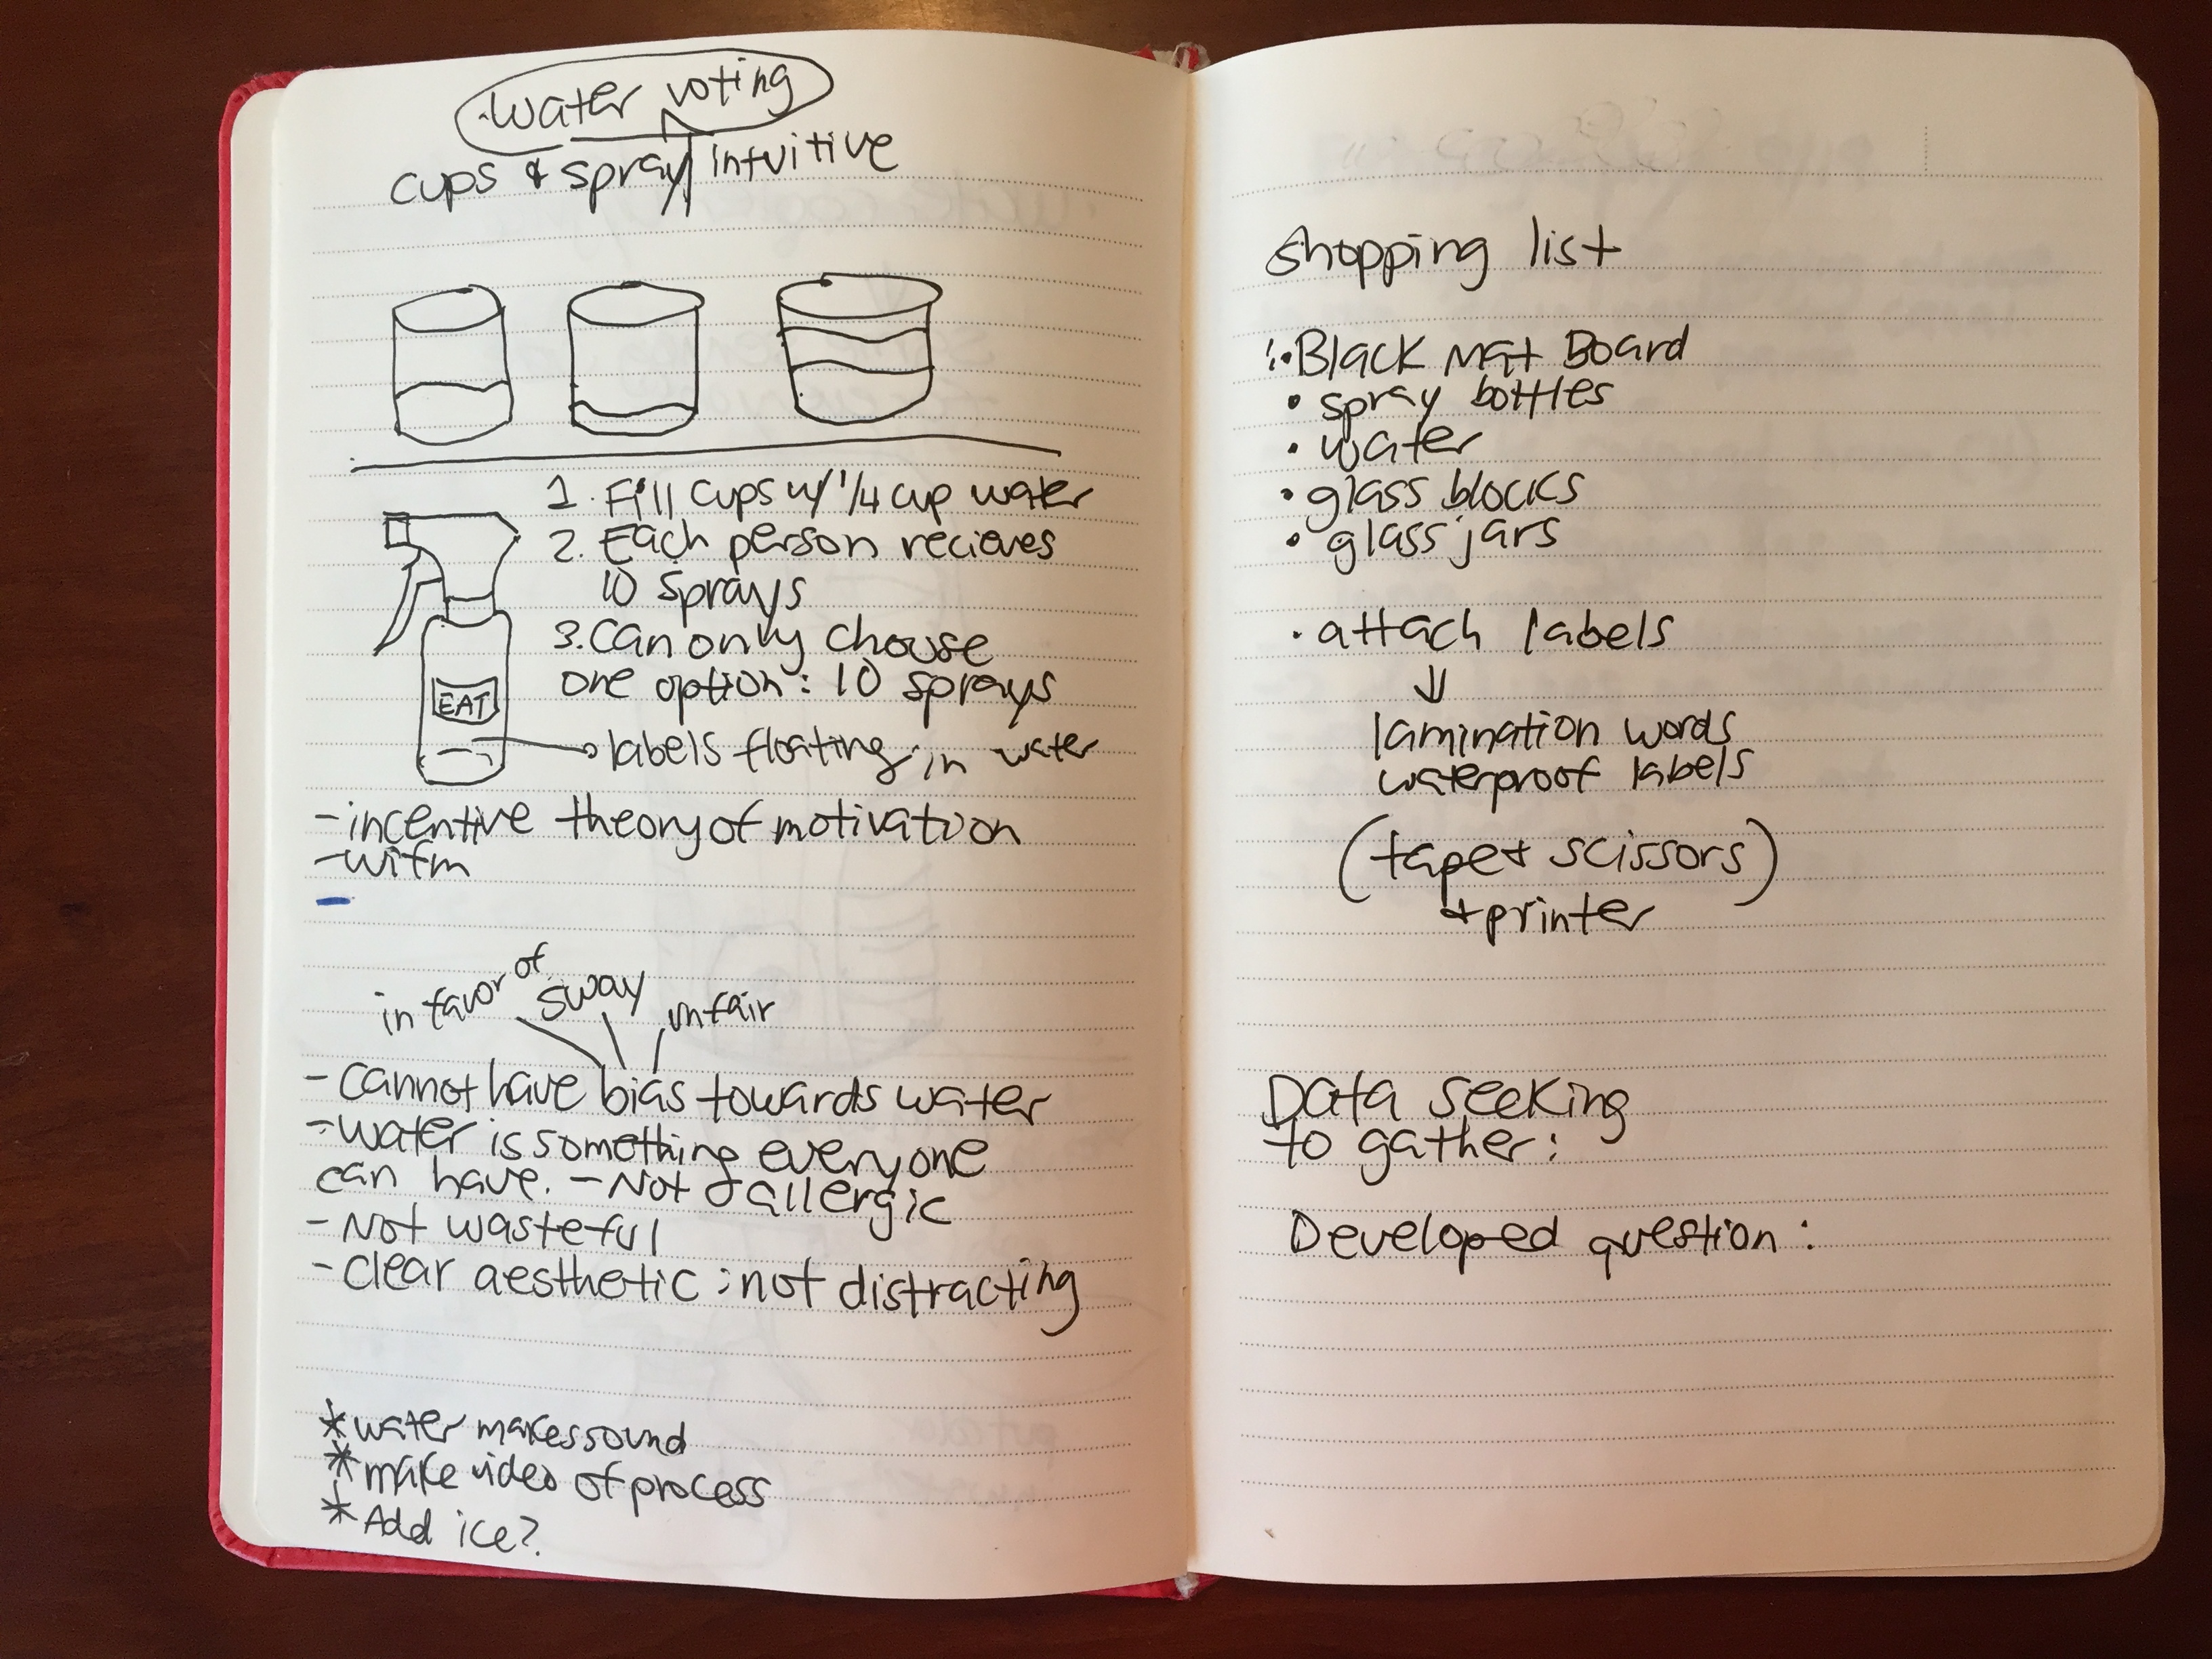 ·water voting
cups & spray intuitive
1. Fill cups w/ 1/4 cup water
2. Each person recieves
10 sprays
3. Can only choose
one option: 10 sprays
EAT
labels floating in water
- incentive theory of motivation
- wifm
-
in favor of sway unfair
- cannot have bias towards water
- water is something everyone
can have. - Not allergic
- Not wasteful
- clear aesthetic ; not distracting
* water makes sound
* make video of process
* Add ice?
shopping list
• Black Mat Board
• spray bottles
• water
• glass blocks
• glass jars
• attach labels
lamination words
waterproof labels
(tape + scissors)
+ printer
Data seeking
to gather:
Developed question: